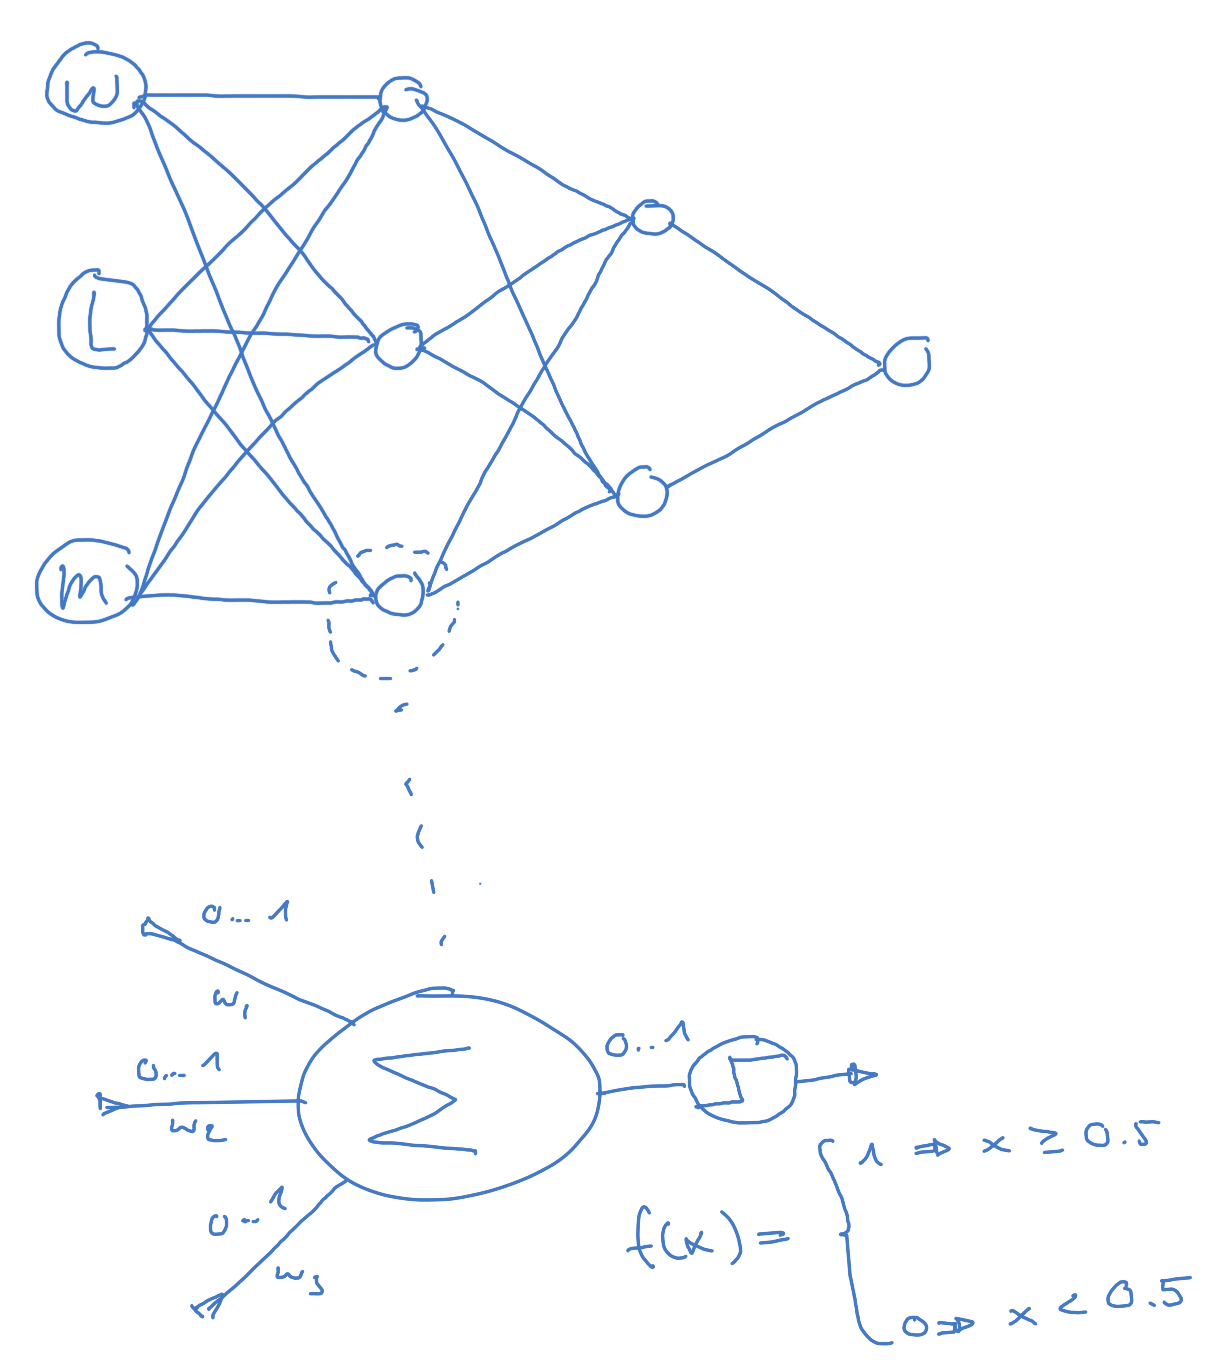 W
L
m
0...1
w1
0...1
w2
0...1
w3
Σ
0...1
f(x) =
1 ⇒ x ≥ 0.5
0 ⇒ x < 0.5